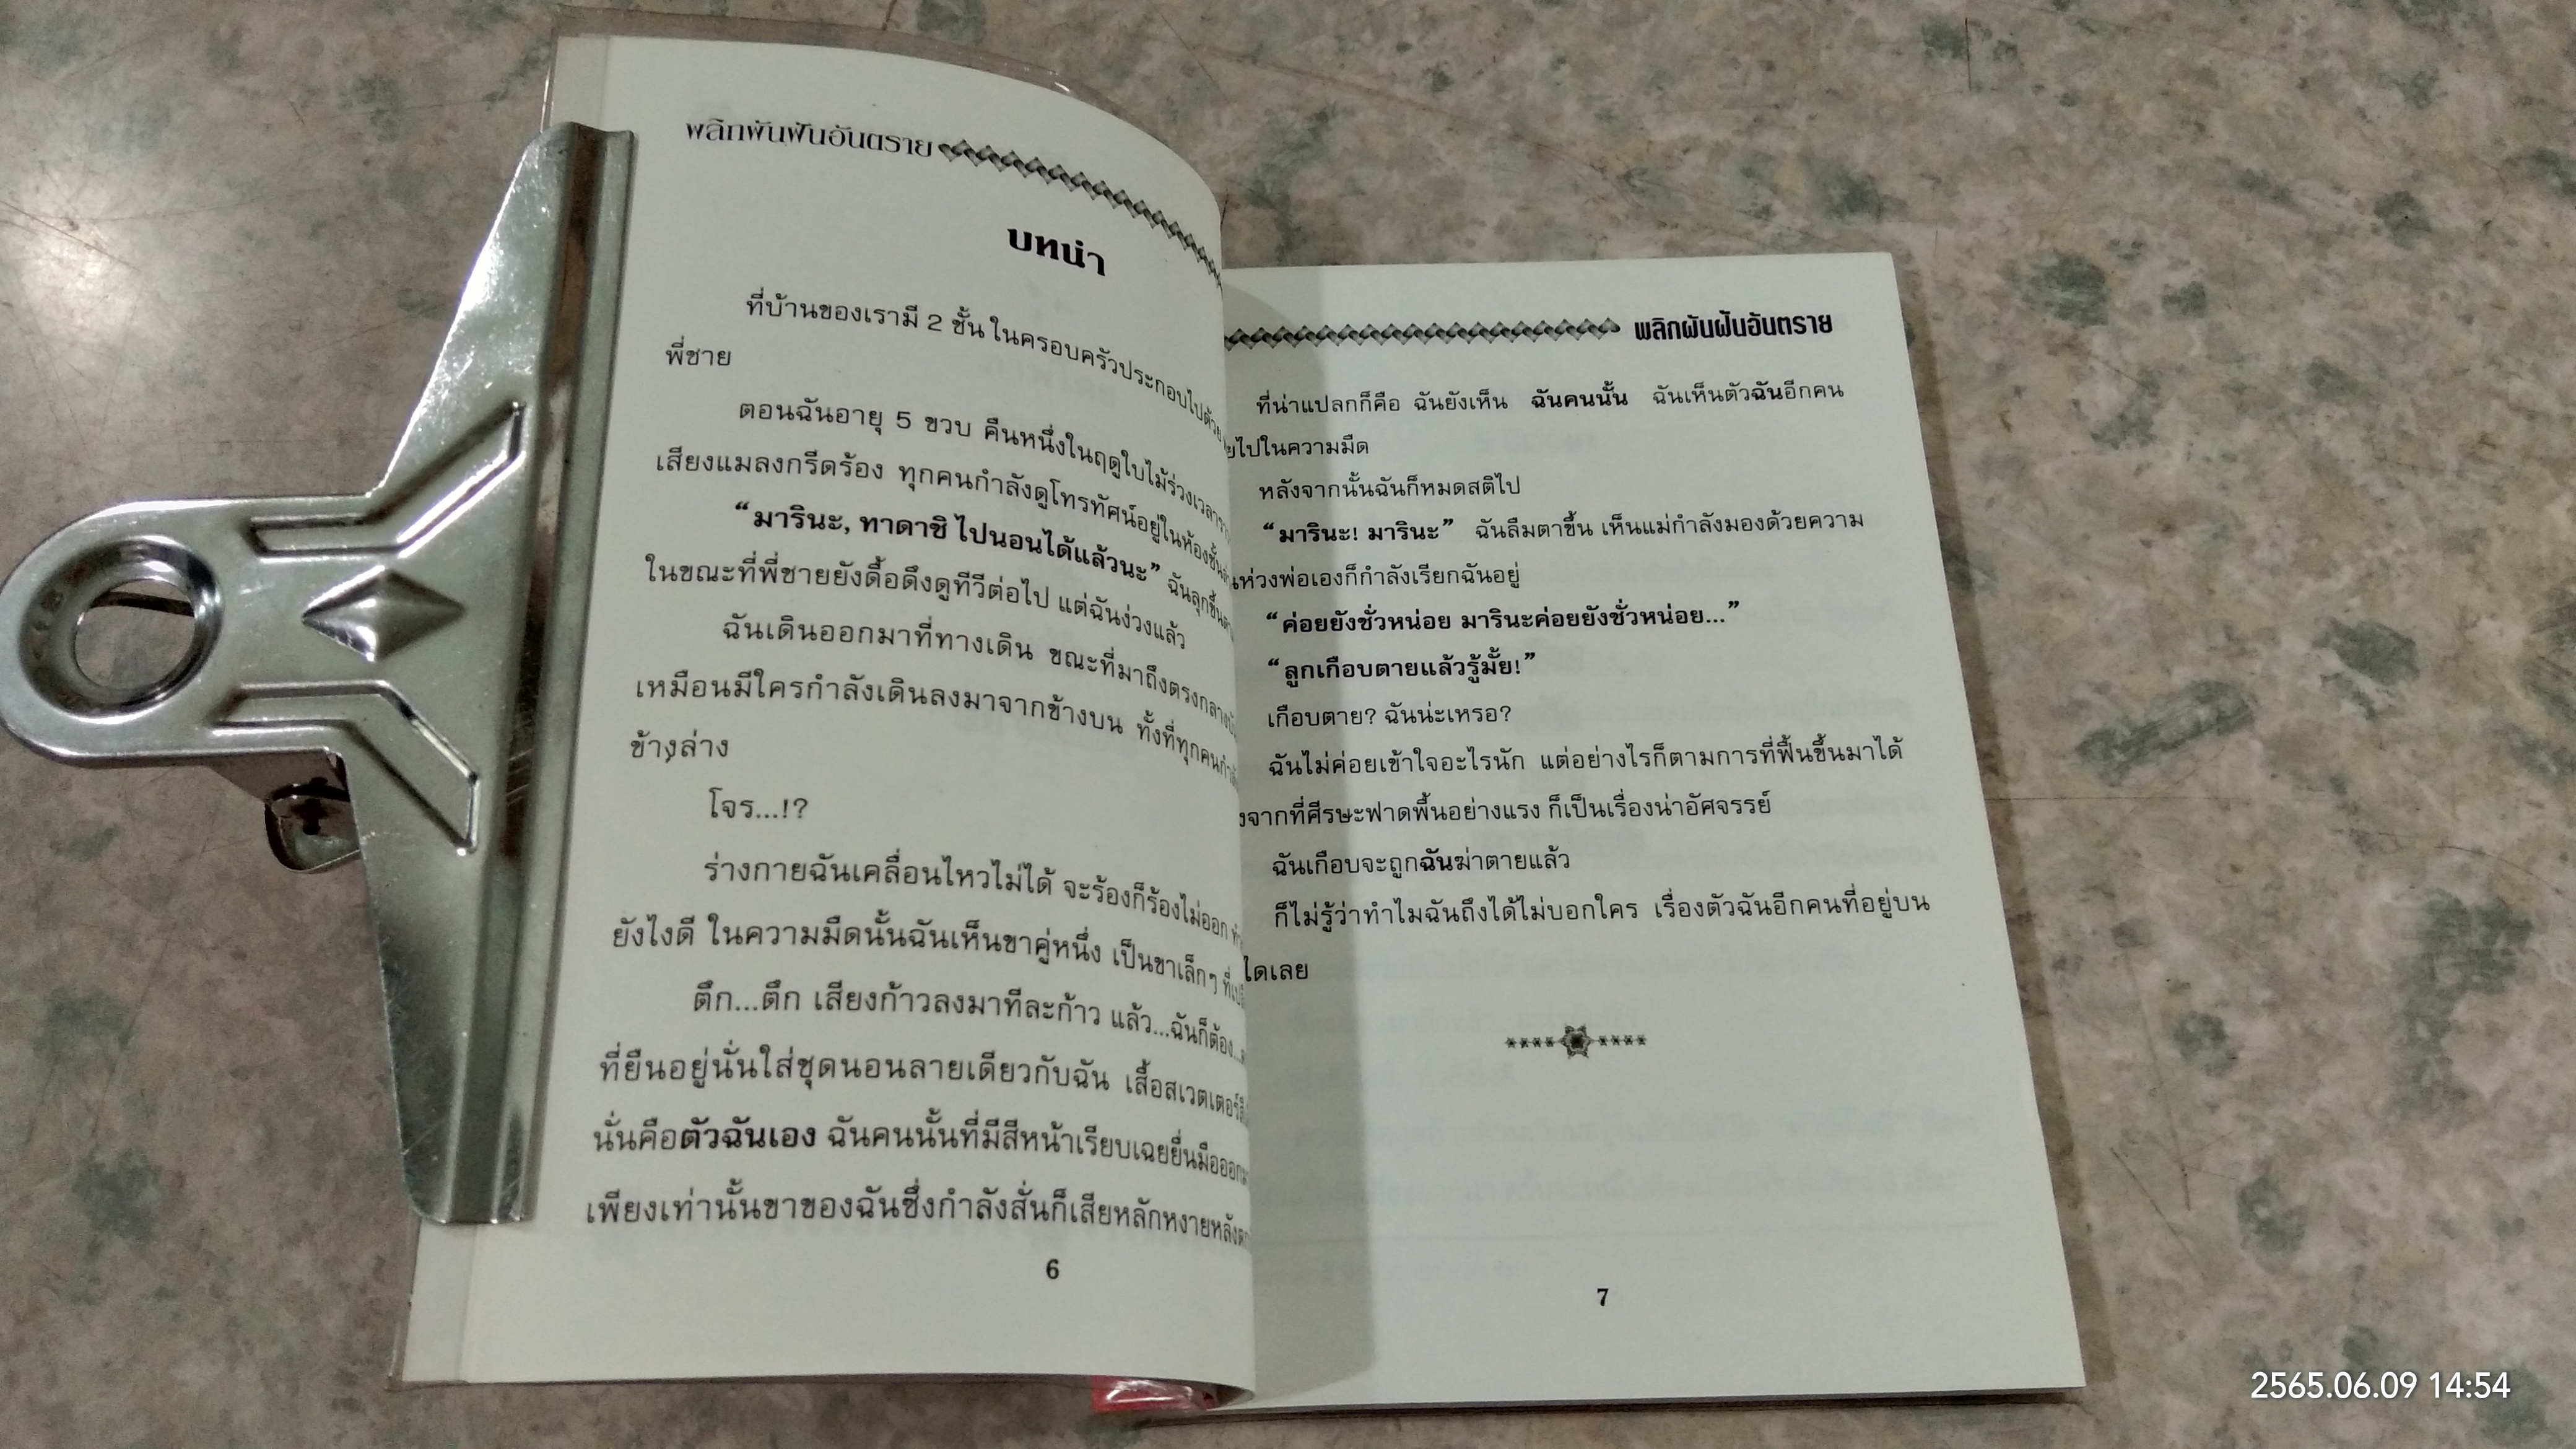 พลิกผันฝันอันตราย
บทนำ
ที่บ้านของเรามี 2 ชั้น ในครอบครัวประกอบไปด้วย
พี่ชาย
ตอนฉันอายุ 5 ขวบ คืนหนึ่งในฤดูใบไม้ร่วง
เสียงแมลงกรีดร้อง ทุกคนกำลังดูโทรทัศน์อยู่ในห้อง
“มารินะ, ทาดาชิ ไปนอนได้แล้วนะ” ฉันลุกขึ้น
ในขณะที่พี่ชายยังดื้อดึงดูทีวีต่อไป แต่ฉันง่วงแล้ว
ฉันเดินออกมาที่ทางเดิน ขณะที่มาถึงตรงกลาง
เหมือนมีใครกำลังเดินลงมาจากข้างบน ทั้งที่ทุกคน
ข้างล่าง
โจร...!?
ร่างกายฉันเคลื่อนไหวไม่ได้ จะร้องก็ร้องไม่ออก
ยังไงดี ในความมืดนั้นฉันเห็นขาคู่หนึ่ง เป็นขาเล็กๆ
ตึก...ตึก เสียงก้าวลงมาทีละก้าว แล้ว...ฉันก็ต้อง...
ที่ยืนอยู่นั่นใส่ชุดนอนลายเดียวกับฉัน เสื้อสเวตเตอร์
นั่นคือตัวฉันเอง ฉันคนนั้นที่มีสีหน้าเรียบเฉยยื่นมือออก
เพียงเท่านั้นขาของฉันซึ่งกำลังสั่นก็เสียหลักหงายหลัง
6
พลิกผันฝันอันตราย
ที่น่าแปลกก็คือ ฉันยังเห็น ฉันคนนั้น ฉันเห็นตัวฉันอีกคน
ไปในความมืด
หลังจากนั้นฉันก็หมดสติไป
“มารินะ! มารินะ” ฉันลืมตาขึ้น เห็นแม่กำลังมองด้วยความ
ห่วงพ่อเองก็กำลังเรียกฉันอยู่
“ค่อยยังชั่วหน่อย มารินะค่อยยังชั่วหน่อย...”
“ลูกเกือบตายแล้วรู้มั้ย!”
เกือบตาย? ฉันน่ะเหรอ?
ฉันไม่ค่อยเข้าใจอะไรนัก แต่อย่างไรก็ตามการที่ฟื้นขึ้นมาได้
จากที่ศีรษะฟาดพื้นอย่างแรง ก็เป็นเรื่องน่าอัศจรรย์
ฉันเกือบจะถูกฉันฆ่าตายแล้ว
ก็ไม่รู้ว่าทำไมฉันถึงได้ไม่บอกใคร เรื่องตัวฉันอีกคนที่อยู่บน
ไดเลย
7
2565.06.09 14:54